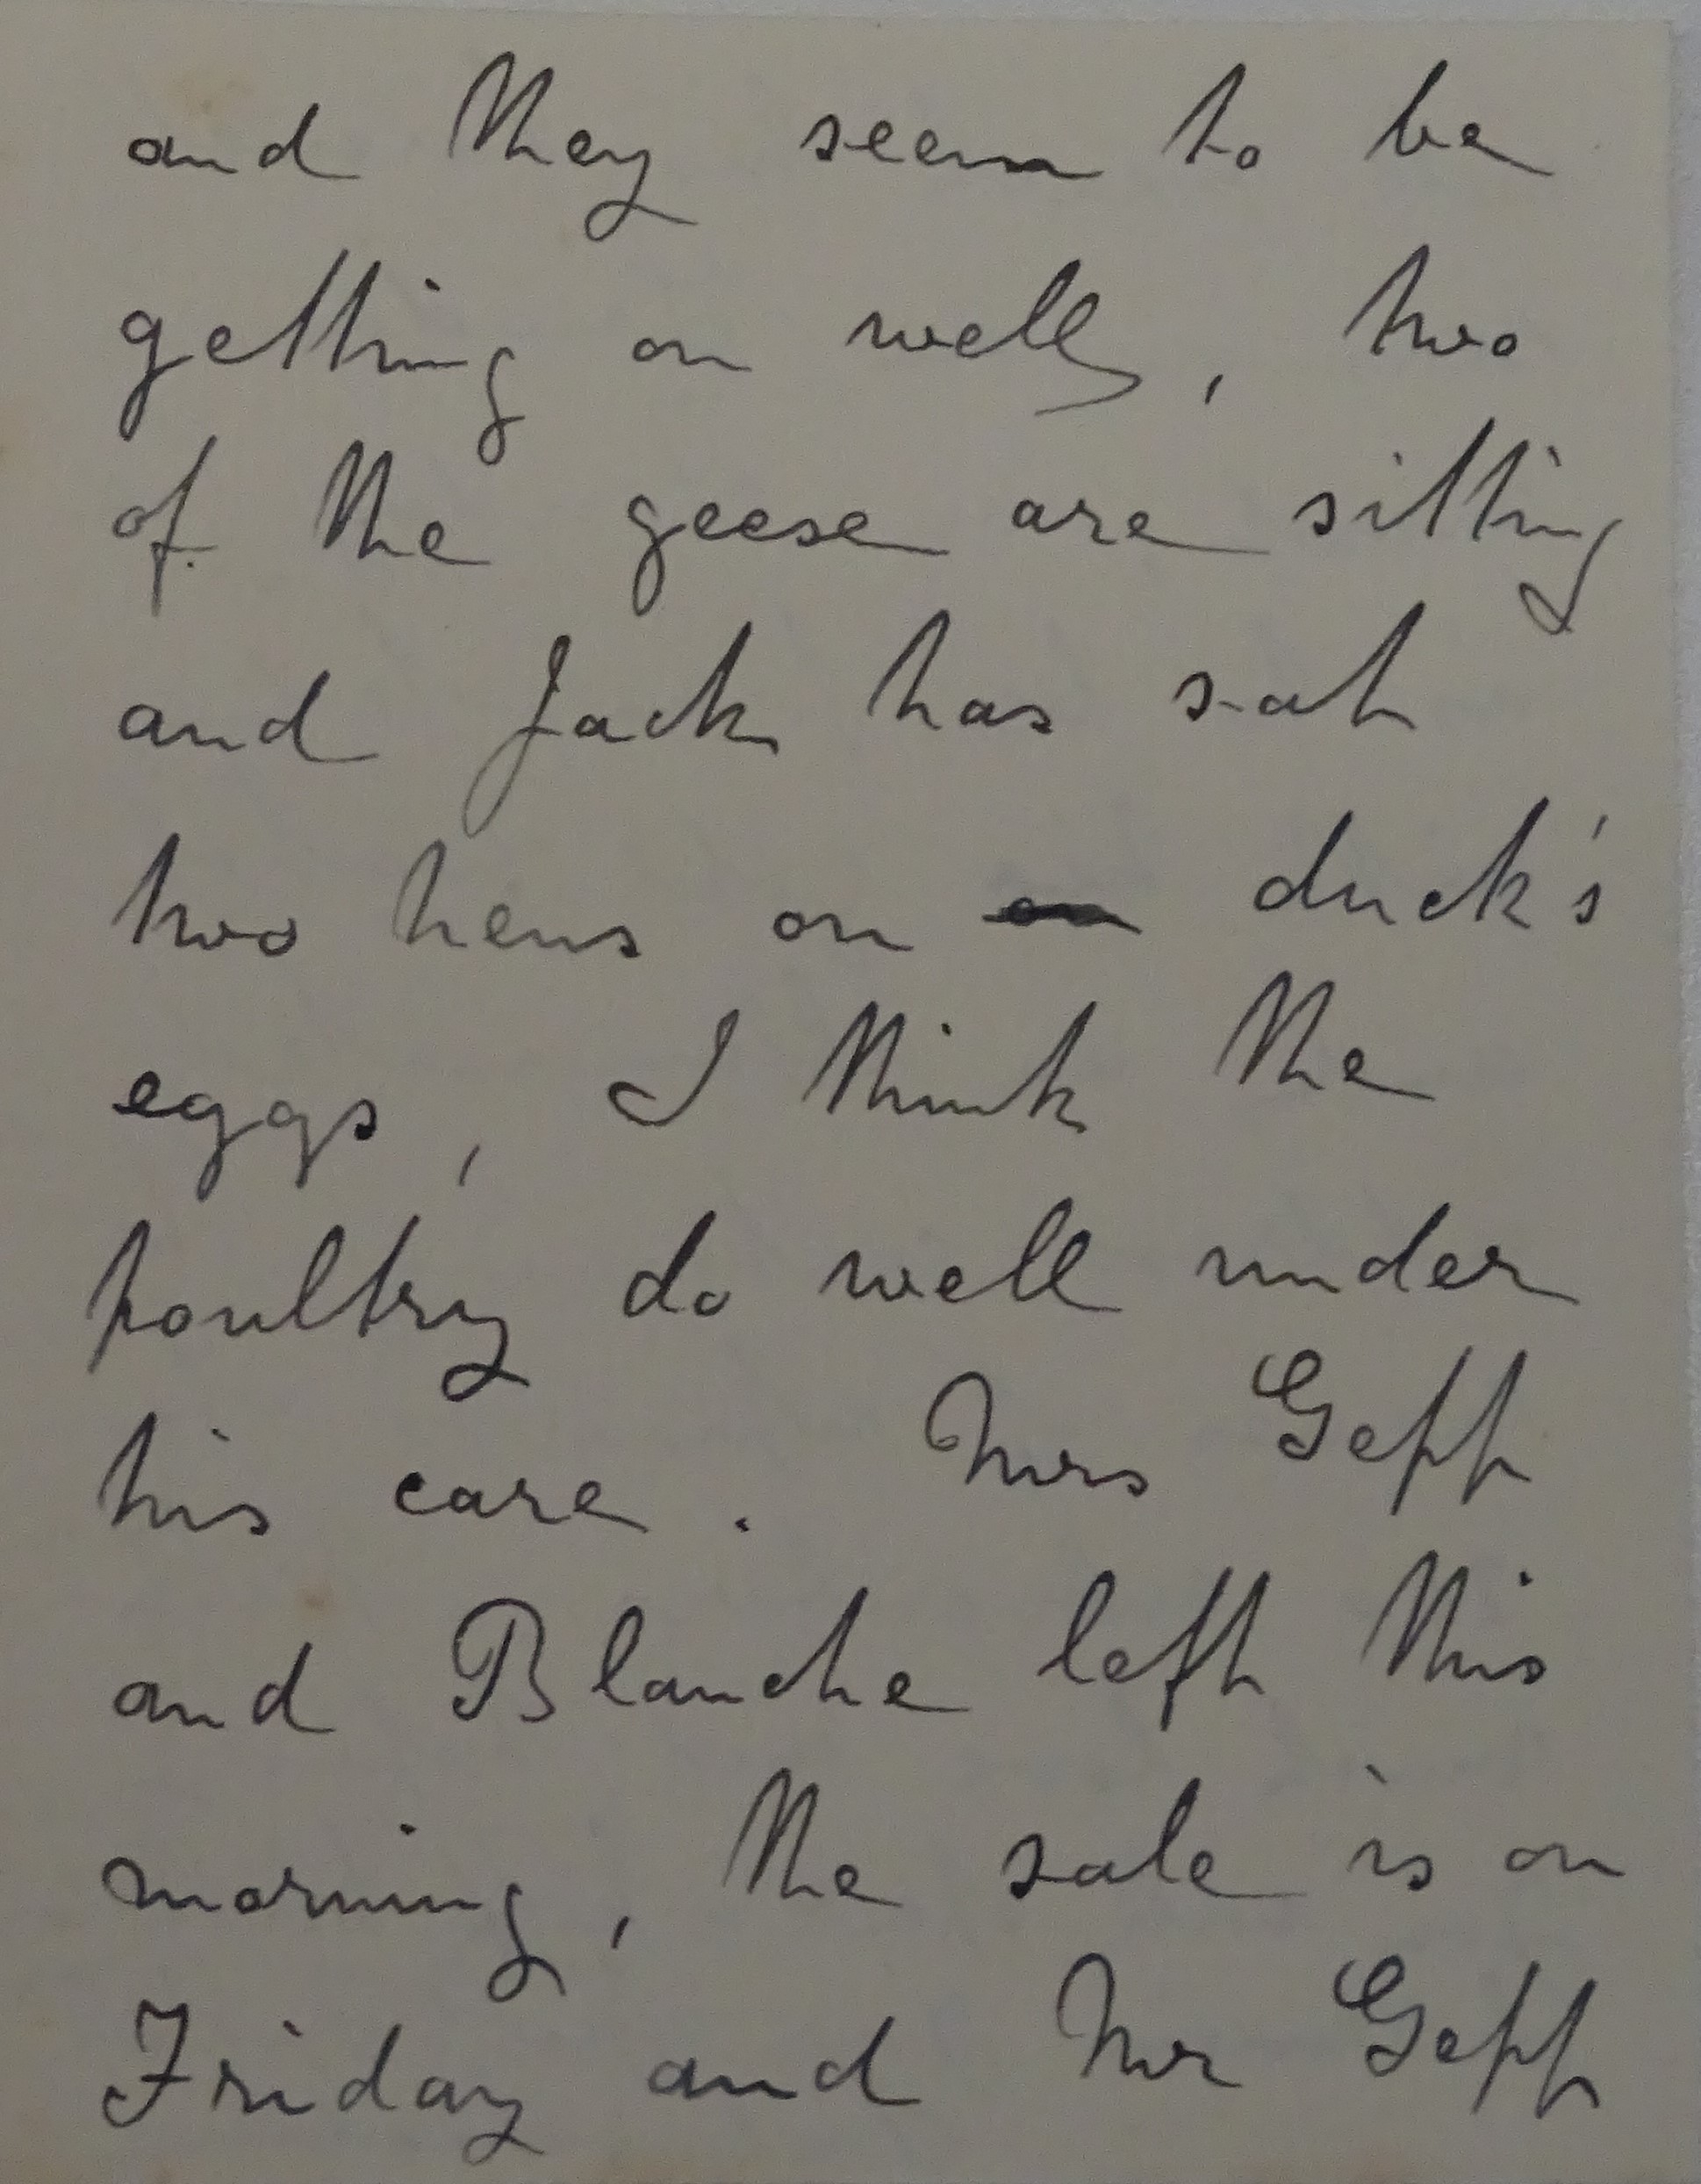 and they seem to be
getting on well, two
of the geese are sitting
and Jack has sat
two hens on duck's
eggs, I think the
poultry do well under
his care. Mrs Gepp
and Blanche left this
morning, the sale is on
Friday and Mr Gepp